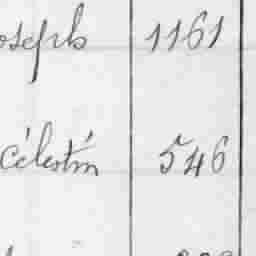 oseph 1161
Célestin 546